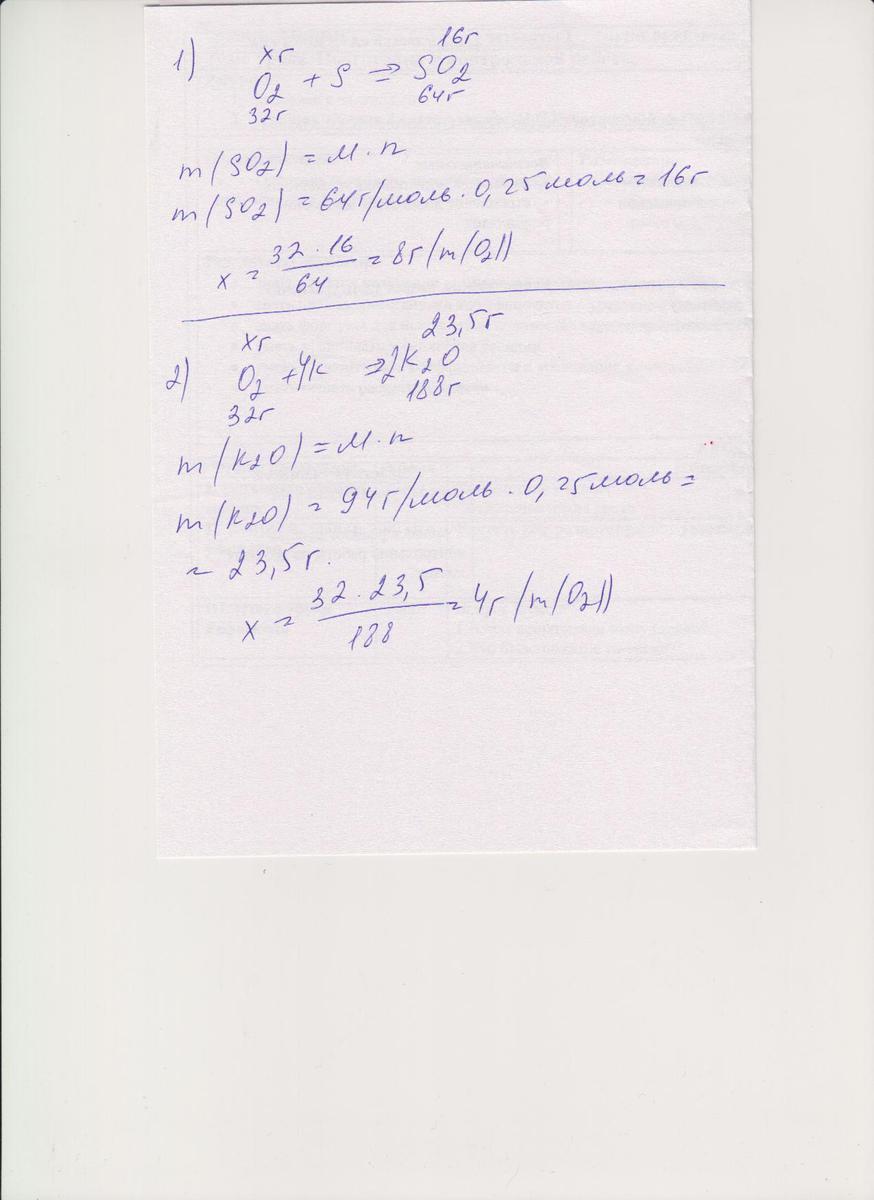 1) xг 16г
O2 + S => SO2
32г 64г
m(SO2) = M·n
m(SO2) = 64г/моль · 0,25моль = 16г
x = 32 · 16 / 64 = 8г (m(O2))
2) xг 23,5г
O2 + 4K => 2K2O
32г 188г
m(K2O) = M·n
m(K2O) = 94г/моль · 0,25моль =
= 23,5г.
x = 32 · 23,5 / 188 = 4г (m(O2))